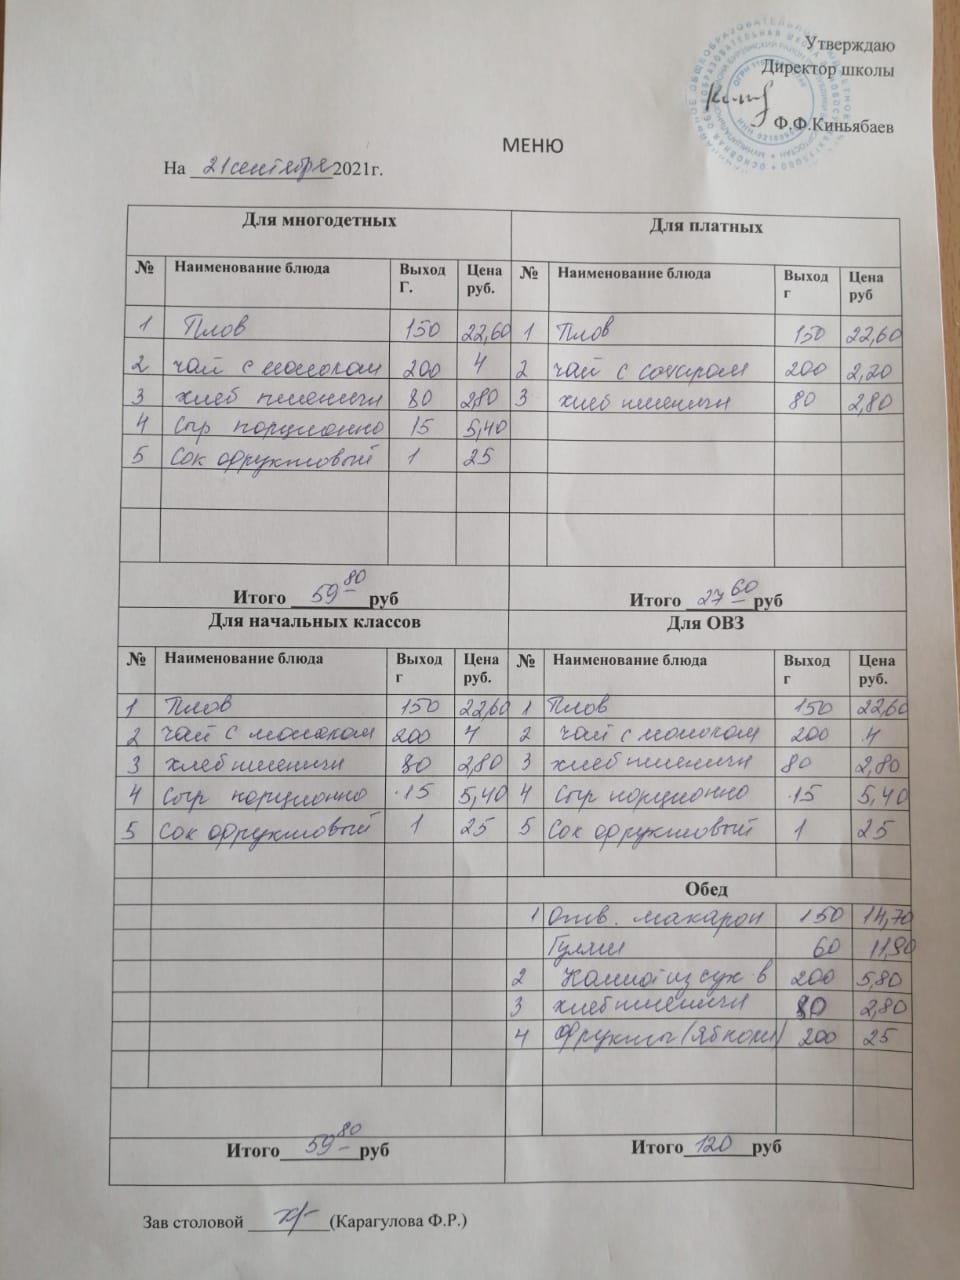 Утверждаю
Директор школы
Ф.Ф.Киньябаев
МЕНЮ
На 21 сентября 2021г.
Для многодетных Для платных
№ Наименование блюда Выход Г. Цена руб. № Наименование блюда Выход г Цена руб
1 Плов 150 22,60 1 Плов 150 22,60
2 чай с молоком 200 4 2 чай с сахаром 200 2,20
3 хлеб пшеничн 80 2,80 3 хлеб пшеничн 80 2,80
4 Сыр порционно 15 5,40
5 Сок фруктовый 1 25
Итого 59 80 руб Итого 27 60 руб
Для начальных классов Для ОВЗ
№ Наименование блюда Выход г Цена руб. № Наименование блюда Выход г Цена руб.
1 Плов 150 22,60 1 Плов 150 22,60
2 чай с молоком 200 4 2 чай с молоком 200 4
3 хлеб пшеничн 80 2,80 3 хлеб пшеничн 80 2,80
4 Сыр порционно 15 5,40 4 Сыр порционно 15 5,40
5 Сок фруктовый 1 25 5 Сок фруктовый 1 25
Обед
1 Отв. макарон 150 14,70
Гуляш 60 11,90
2 Компот из сух в 200 5,80
3 хлеб пшеничн 80 2,80
4 Фрукты (яблоки) 200 25
Итого 59 80 руб Итого 120 руб
Зав столовой (Карагулова Ф.Р.)